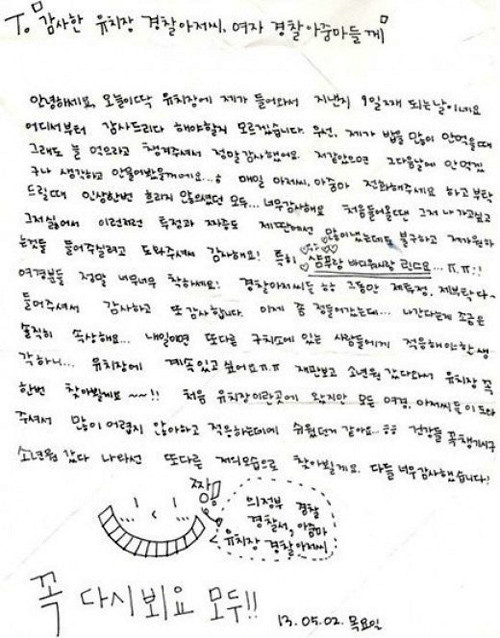 To. 감사한 유치장 경찰아저씨, 여자 경찰아줌마들께
안녕하세요, 오늘이 딱 유치장에 제가 들어와서 지낸지 9일째 되는날이네요
어디서부터 감사드리다 해야할지 모르겠습니다. 우선, 제가 밥을 많이 안먹을때
그래도 늘 먹으라고 챙겨주셔서 정말 감사했어요. 저같았으면 그다음날에 안먹겠
구나 생각하고 안물어봤을꺼에요...ㅎ 매일 아저씨, 아줌마 전화해주세요 하고 부탁
드릴때 인상한번 흐리지 않으셨던 모두... 너무감사해요 처음들어올땐 그저 나가고싶고
그저싫어서 이런저런 투정과 짜증도 제딴에선 많이냈는데도 불구하고 제가원하
는것들 들어주실려고 도와주셔서 감사해요! 특히 샴푸랑 바디워시랑 린스요...ㅠ.ㅠ!!
여경분들 정말 너무너무 착하세요! 경찰아저씨들 하 그동안 제투정, 제부탁 다
들어주셔서 감사하고 또 감사합니다. 이제 좀 정들어가는데... 나간다는게 조금은
솔직히 속상해요... 내일이면 또다른 구치소에 있는 사람들에게 적응해야한생
각하니... 유치장에 계속있고 싶어요ㅠㅠ 재판보고 소년원 갔다와서 유치장 꼭
한번 찾아뵐게요 ~~!! 처음 유치장이란곳에 왔지만 모든 여경, 아저씨들이 도와
주셔서 많이 어렵지 않아하고 적응하는데에 쉬웠던거 같아요..ㅎㅎ 건강들 꼭챙기시구
소년원 갔다 나와선 또다른 저의모습으로 찾아뵐게요. 다들 너무감사했습니다!
짱!
의정부 경찰
경찰서, 아줌마
유치장 경찰아저씨
꼭 다시뵈요 모두!!
13. 05. 02. 목요일